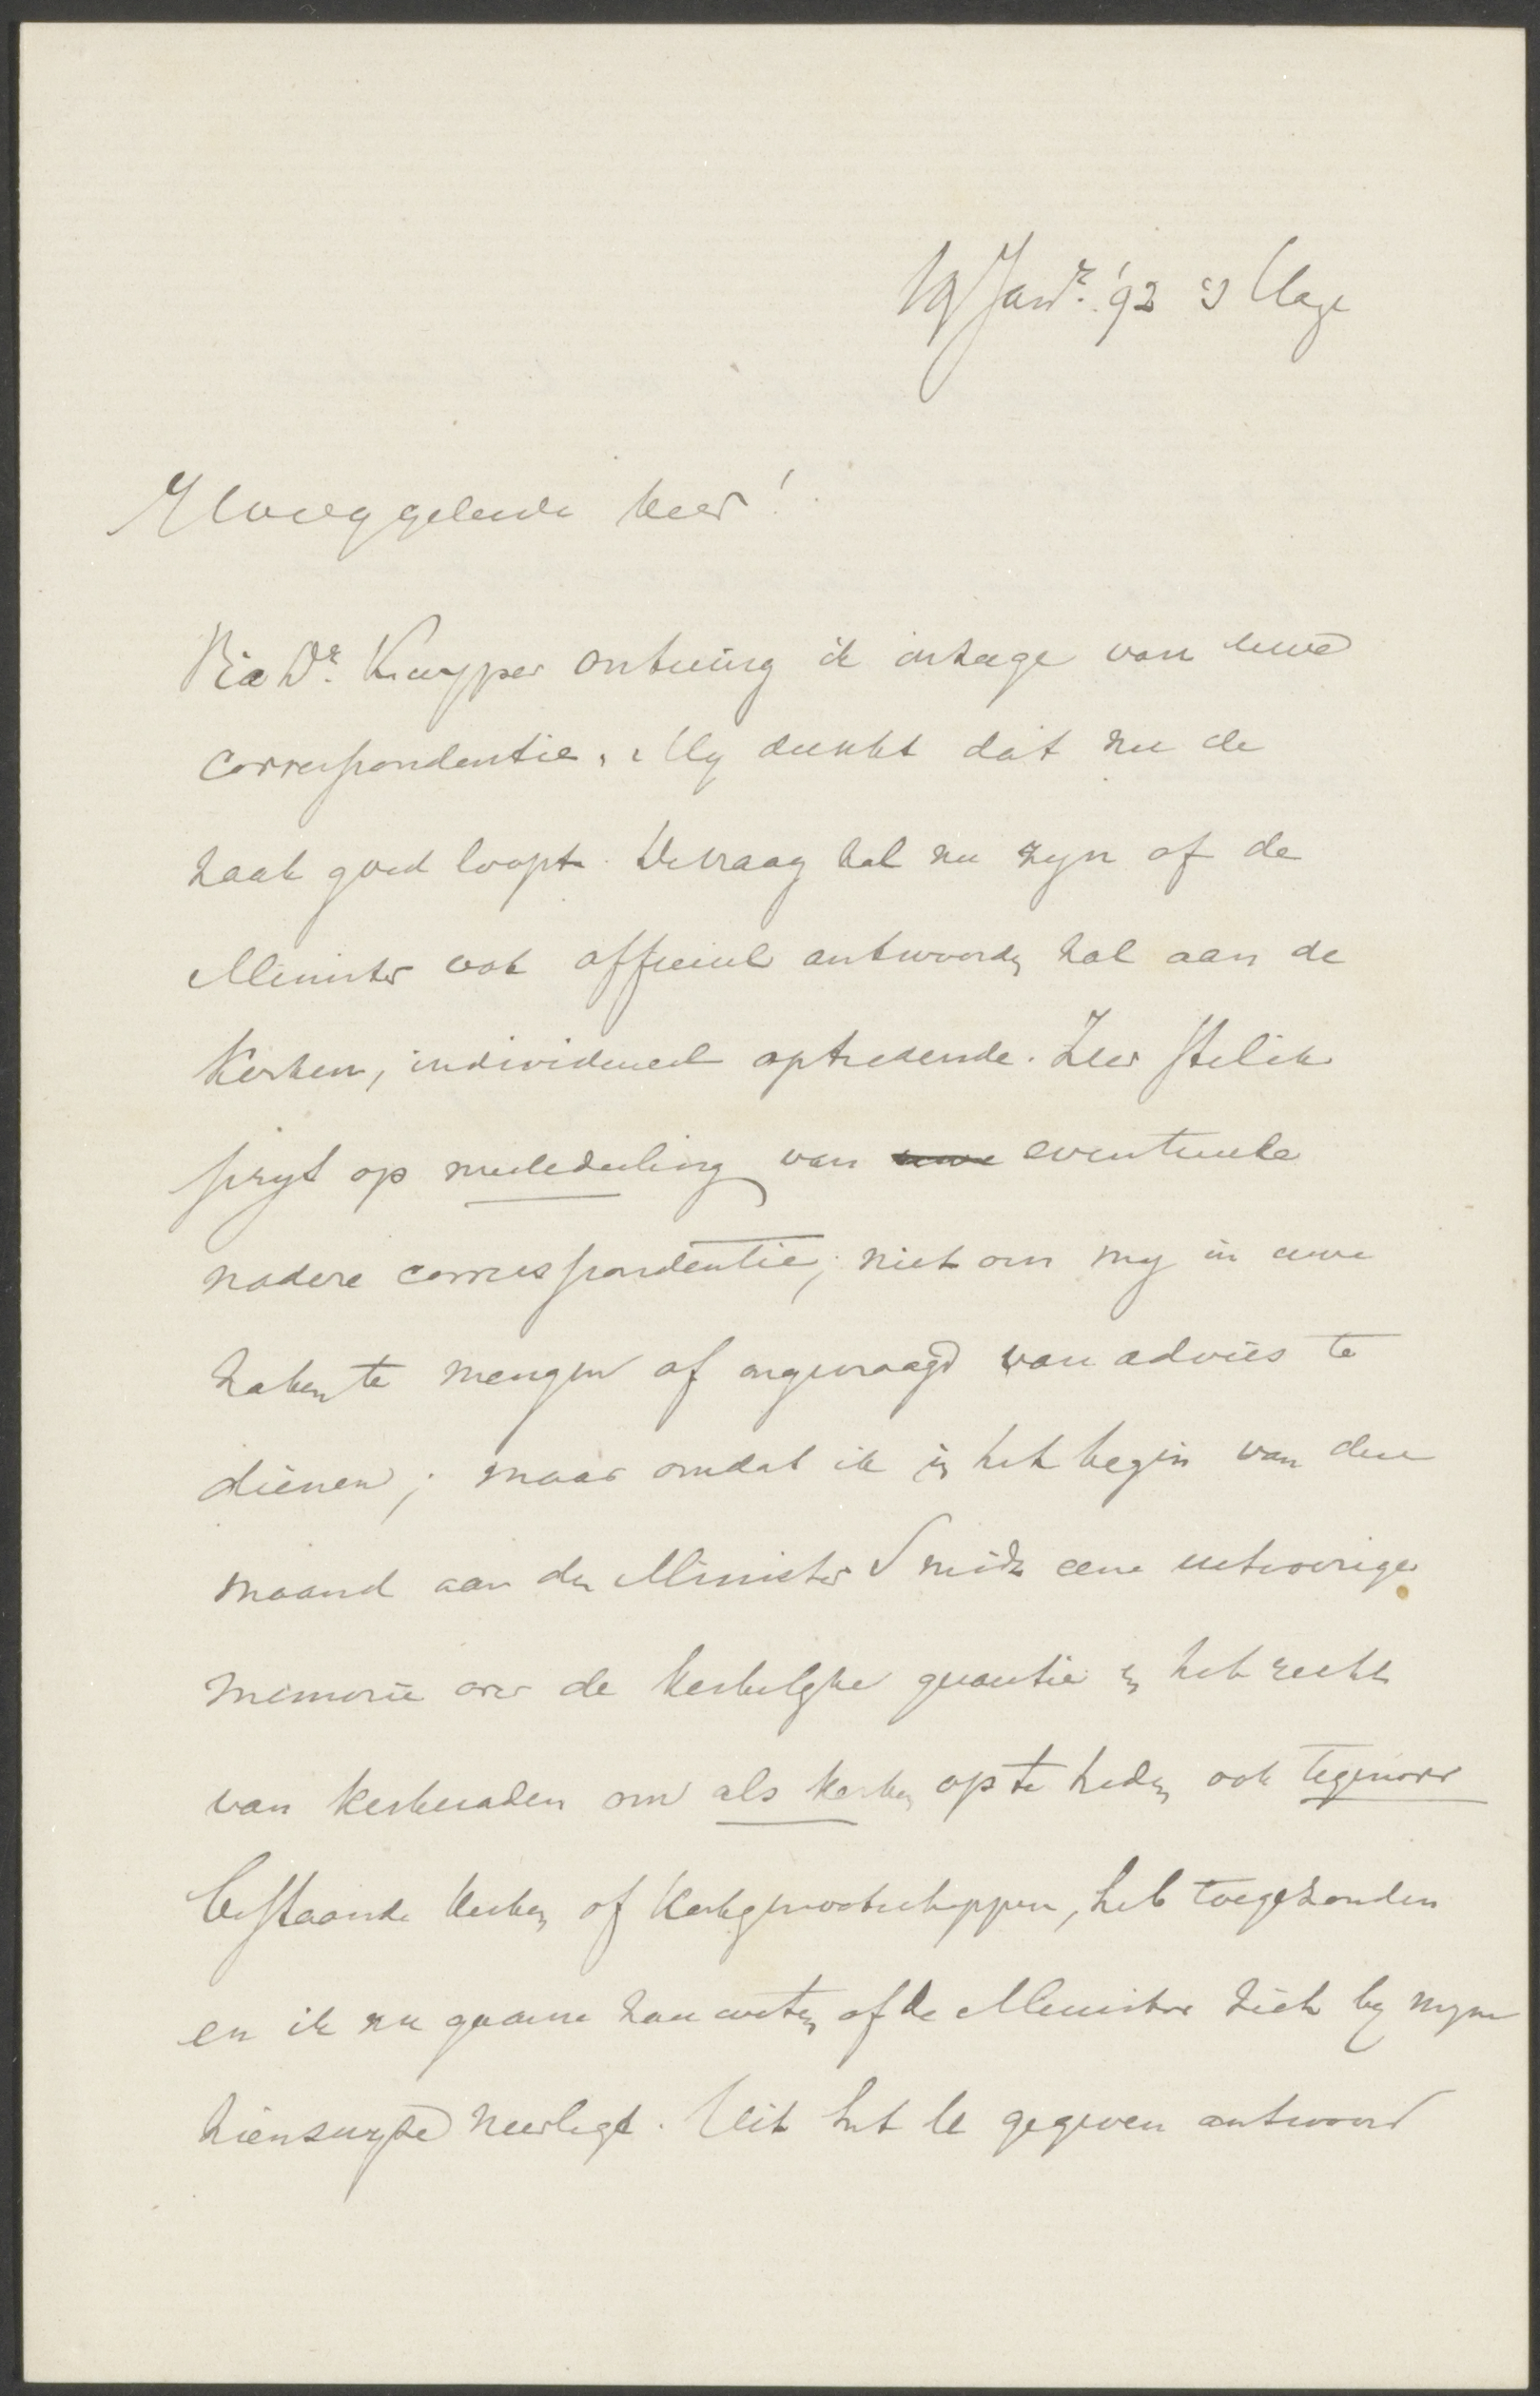 19 Janr. '92 's Hage
Hooggeleerde heer!
Via Dr. Kuyper ontving ik inzage van uwe
correspondentie. My dunkt dat nu de
zaak goed loopt. De vraag zal nu zyn of de
Minister ook officieel antwoorden zal aan de
Kerken, individueel optredende. Zeer stel ik
prys op mededeeling van uwe eventueele
nadere correspondentie; niet om my in uwe
zaken te mengen of ongevraagd van advies te
dienen; maar omdat ik in het begin van deze
maand aan den Minister Smidt eene uitvoerige
memorie over de kerkelyke quaestie en het recht
van kerkeraden om als kerken op te treden, ook tegenover
bestaande kerken of kerkgenootschappen, heb toegezonden
en ik nu gaarne zou weten of de Minister zich by myne
zienswyze neerlegt. Uit het te gegeven antwoord